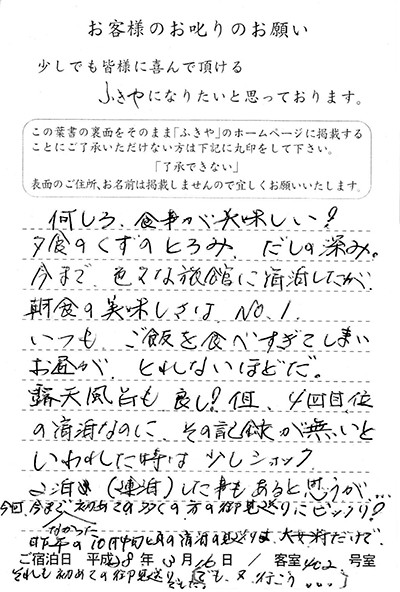 お客様のお叱りのお願い
少しでも皆様に喜んで頂ける
ふきやになりたいと思っております。
この葉書の裏面をそのまま「ふきや」のホームページに掲載する
ことにご了承いただけない方は下記に丸印をして下さい。
「了承できない」
表面のご住所、お名前は掲載しませんので宜しくお願いいたします。
何しろ、食事が美味しい!
夕食のくずのとろみ、だしの深み。
今まで、色々な旅館に宿泊したが、
朝食の美味しさは、NO.1.
いつも、ご飯を食べすぎてしまい
お昼が、とれないほどだ。
露天風呂も良し!但、4回目位
の宿泊なのに、その記録が無いと
いわれた時は少しショック
2泊(連泊)した事もあると思うが…
今回、今まで初めての多くの方の御見送りにビックリ!
なかった
昨年の10月中旬の宿泊の見送りは大女将だけで、
ご宿泊日 平成28年3月16日 / 客室402号室
それも初めての御見送り でも、又行こう…